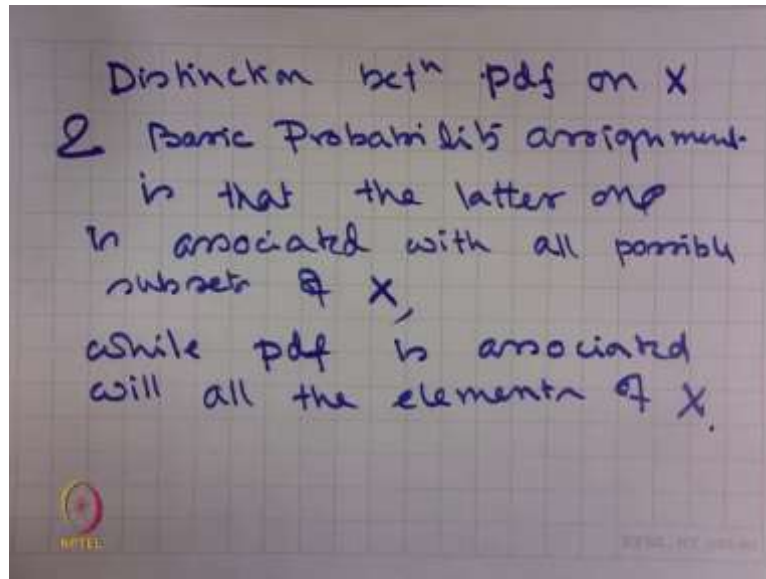 Distinction betⁿ pdf on X
& Basic Probability assignment
is that the latter one
is associated with all possible
subsets of X,
while pdf is associated
will all the elements of X.
NPTEL